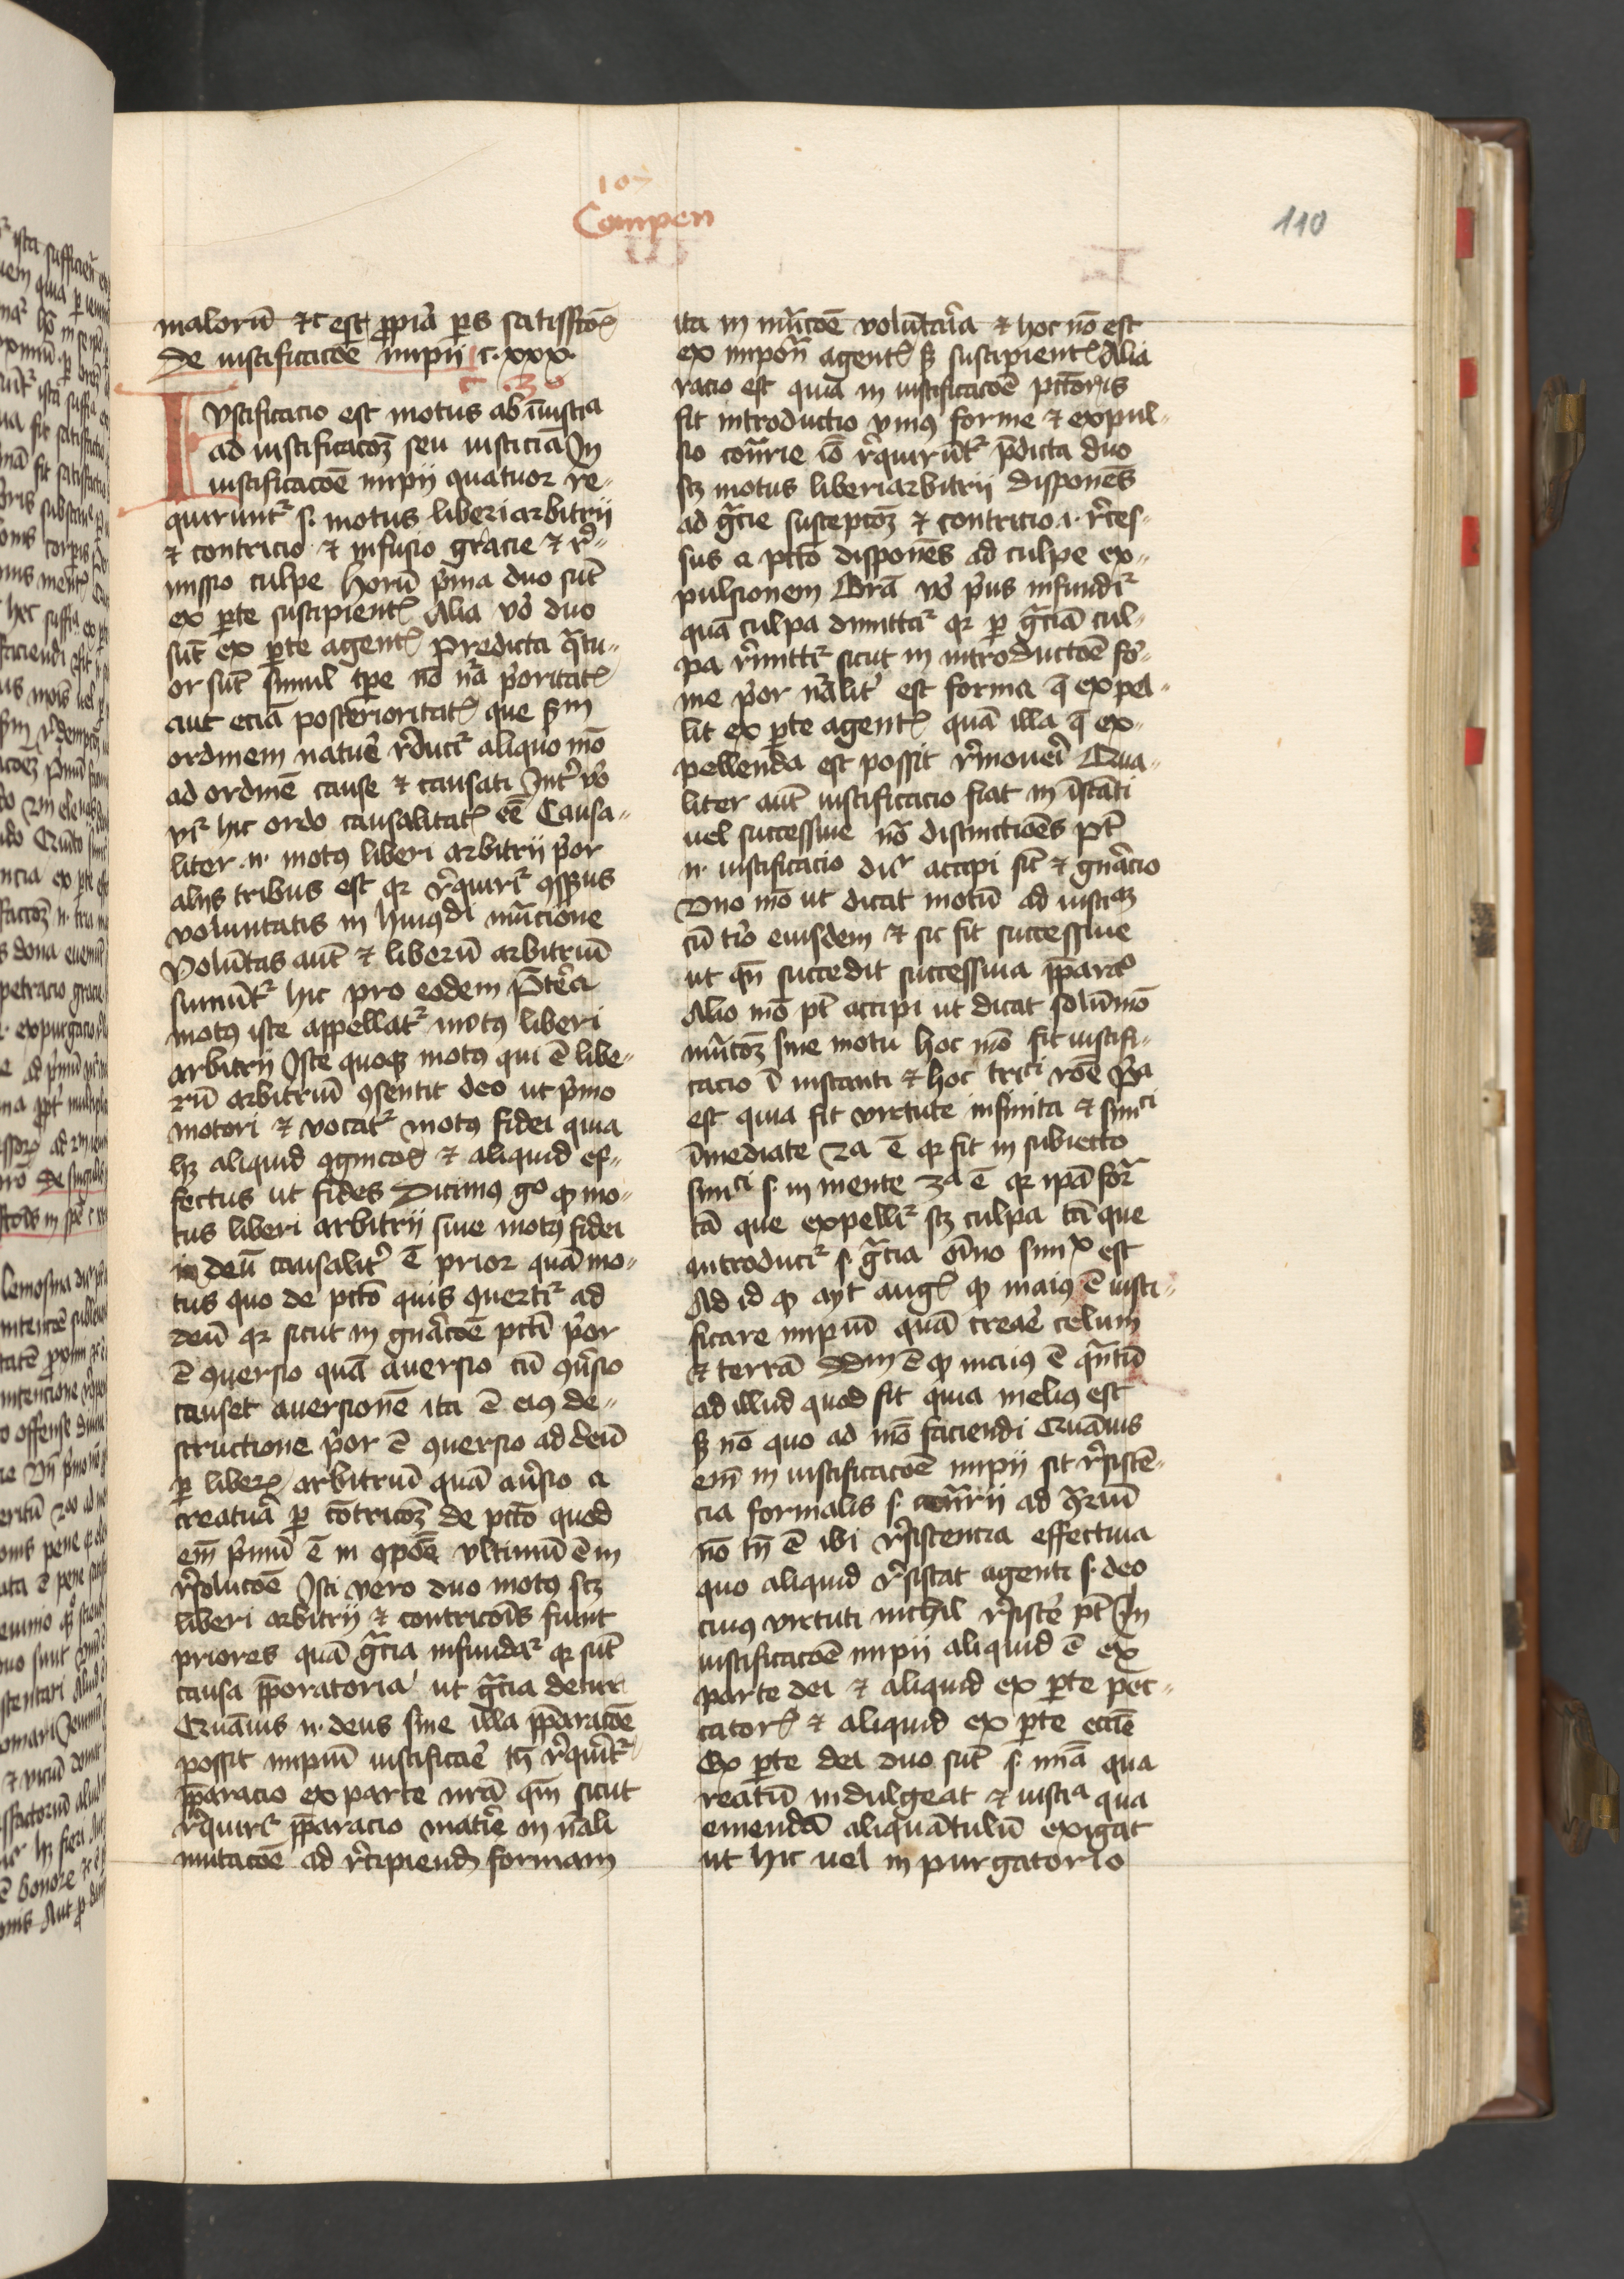 107
Compen
110
malorū ⁊c est ꝓpria ꝑs satisfactōīs
De iustificacōe impii c. xxx.
c. 30
Iustificacio est motus ab īiusticia
ad iustificacōꝫ seu iusticiā In
iustificacōe impij quatuor re-
quirunt᷑ s. motus liberi arbitrij
⁊ contricio ⁊ infusio gracie ⁊ re-
missio culpe Horū p̄ma duo sūt
ex ꝑte suscipientꝭ Alia vo duo
sūt ex ꝑte agentꝭ Predicta q̄tu-
or sūt simul tꝑe nō nr̄a p̄oritatꝭ
aut eciā posterioritatꝭ que scd̄m
ordinem nature reducit᷑ aliquo mō
ad ordinē cause ⁊ causati Int᷑ vo
vr̄ hic ordo causalitatꝭ eē Causa-
liter n. motꝰ liberi arbitrij p̄or
alijs tribus est qꝛ req̄rit᷑ ꝯsensus
voluntatis in huiꝰdi mutacione
Volūtas aut̄ ⁊ liberū arbitriū
sumūt᷑ hic pro eodem Preterea
motꝰ iste appellat᷑ motꝰ liberi
arbitrij Iste quoqꝫ motꝰ qui ē libe-
rū arbitriū ꝯsentit deo ut p̄mo
motori ⁊ vocat᷑ motꝰ fidei quia
hꝫ aliquid ꝯgnicōīs ⁊ aliquid ef-
fectus ut fides Dicimꝰ gͦ ꝙ mo-
tus liberi arbitrij siue motꝰ fidei
in deū causalit᷑ ē prior quā mo-
tus quo de pctō quis ꝯuertit᷑ ad
deū qꝛ sicut in gnācōe pcti p̄or
ē ꝯuersio quā auersio cū ꝯuersio
causet auersionē ita ē eiꝰ de-
structione p̄or ē ꝯuersio ad deū
ꝑ liberū arbitriū quā auersio a
creatura ꝑ cōtricōꝫ de pctō quod
em̄ p̄mū ē in ꝯpōe vltimū ē in
resolucōe Isti vero duo motꝰ scꝫ
liberi arbitrij ⁊ contricōīs sunt
priores quā gr̄cia infundat᷑ qꝛ sūt
causa p̄paratoria ut gr̄cia detur
Quāuis n. deus sine illa p̄paracōe
possit impiū iustificare tn̄ req̄rit᷑
p̄paracio ex parte nr̄a qm̄ sicut
req̄rit᷑ p̄paracio materie in nāli
mutacōe ad recipiendā formam
ita in mutacōe volūtaria ⁊ hoc nō est
ex impoñ agentꝭ sꝫ suscipientꝭ Alia
racio est quia in iustificacōe pctōris
fit introductio vniꝰ forme ⁊ expul-
sio contrarie iō requirūt᷑ p̄dicta duo
scꝫ motus liberi arbitrij disponēs
ad gr̄cie suscepcōꝫ ⁊ contricio .i. reces-
sus a pctō disponēs ad culpe ex-
pulsionem Gr̄a vo p̄us infundit᷑
quā culpa dimittat᷑ qꝛ ꝑ gr̄ciā cul-
pa remittit᷑ sicut in introductōe for-
me p̄or nālit᷑ est forma q̄ expel-
lit ex ꝑte agentꝭ quā illa q̄ ex-
pellenda est possit remoueri Qua-
liter aut̄ iustificacio fiat in īstāti
uel successiue nō distinctiōēs pt̄
n. iustificacio dicit᷑ accipi sic̄ ⁊ gnācio
Vno mō ut dicat motū ad iusticiaꝫ
cū t̄io eiusdem ⁊ sic fit successiue
ut qn̄ succedit successiua p̄paracio
Alio mō pt̄ accipi ut dicat solūmō
mutacōꝫ sine motu hoc mō fit iustifi-
cacio ī instanti ⁊ hoc triplici rōe p̄a
est quia fit virtute infinita ⁊ simplici
īmediate 2a ē qꝛ fit in subiecto
simplici s. in mente 3a ē qꝛ ipā forma
tā que expellit᷑ scꝫ culpa tā que
introducit᷑ s. gr̄cia oīno simplex est
Ad id ꝙ ayt augꝰ ꝙ maiꝰ ē iusti-
ficare impiū quā creare celum
⁊ terrā Dd̄m ē ꝙ maiꝰ ē q̄ntū
ad illud quod fit quia meliꝰ est
sꝫ nō quo ad mō faciendi Quāuis
em̄ in iustificacōe impij sit resistē-
cia formalis s. contrarij ad contrariū
nō tn̄ ē ibi resistencia effectiua
quo aliquid resistat agenti s. deo
cuiꝰ virtuti nichil resistere pt̄ In
iustificacōe impij aliquid ē ex
parte dei ⁊ aliquid ex ꝑte pec-
catorꝭ ⁊ aliquid ex ꝑte eccīe
Ex ꝑte dei duo sūt s. mīa qua
reatū indulgeat ⁊ iusticia qua
emendā aliquātulū exigat
ut hic uel in purgatorio